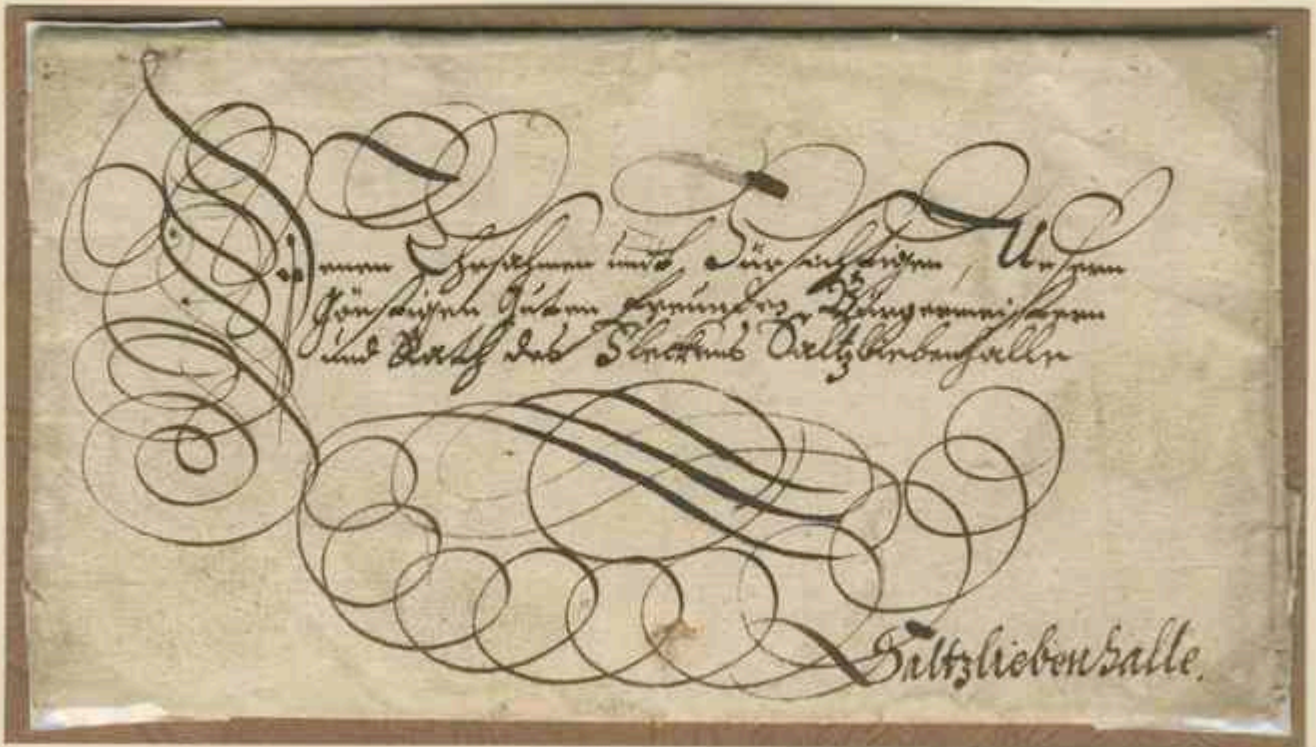 Denen Ehrsahmen undt Fürsichtigen Unsern
Günstigen Guten Freunden, Bürgermeistern
und Rath des Fleckens Saltzliebenhalle
Saltzliebenhalle.